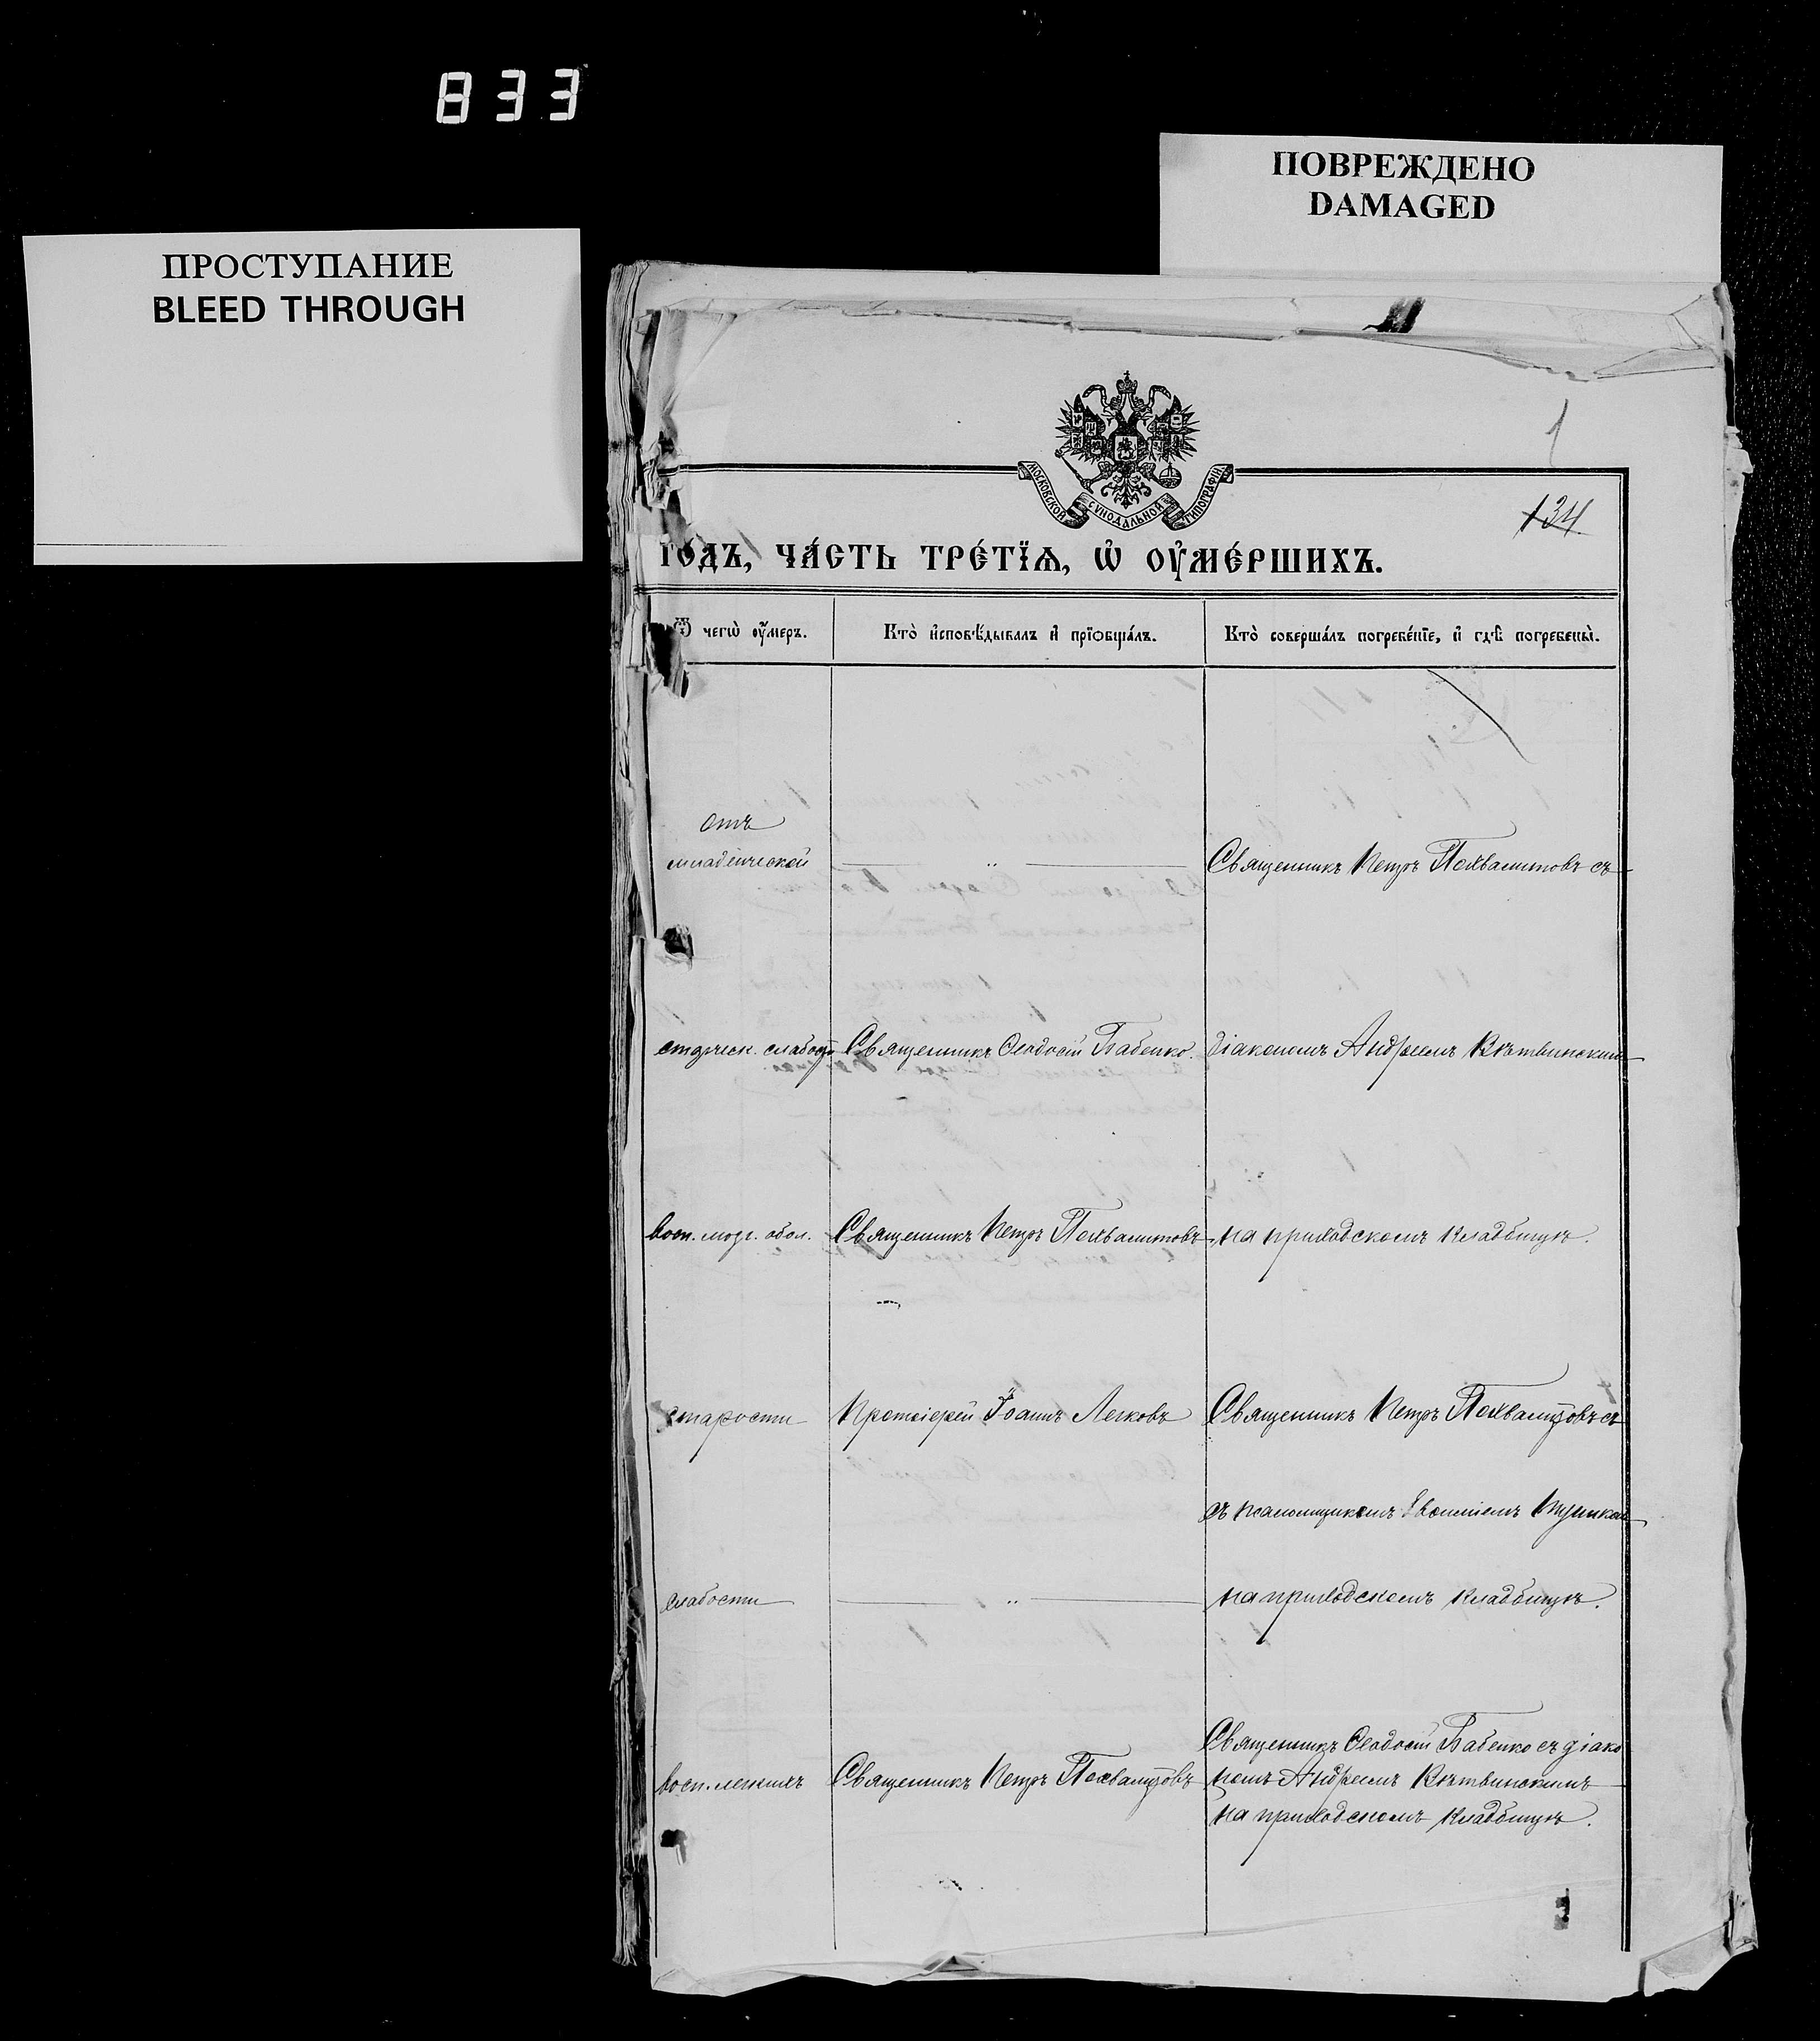 833
ПОВРЕЖДЕНО
DAMAGED
ПРОСТУПАНИЕ
BLEED THROUGH
1
МОСКОВСКОЙ СѴНОДАЛЬНОЙ ТИПОГРАФІИ
134
го́дъ, ча́сть тре́тїѧ, ѡ҆ ᲂу҆ме́ршихъ.
Ѿ чегѡ̀ ᲂу҆́меръ.
Кто̀ и҆сповѣ́дывалъ и҆ прїѡбща́лъ.
Кто̀ соверша́лъ погребе́нїе, и҆ гдѣ̀ погребены̀.
отъ
младенческой
— „ —
Священникъ Петръ Похвалитовъ съ
старческ. слабости
Священникъ Ѳеодосій Бабенко.
діакономъ Андреемъ Вѣтвинскимъ
восп. мозг. обол.
Священникъ Петръ Похвалитовъ
на приходскомъ кладбищѣ.
старости
Протоіерей Іоаннъ Легковъ
Священникъ Петръ Похвалитовъ съ
съ псаломщикомъ
слабости
— „ —
на приходскомъ кладбищѣ.
восп. легкихъ
Священникъ Петръ Похвалитовъ
Священникъ Ѳеодосій Бабенко съ діако
номъ Андреемъ Вѣтвинскимъ
на приходскомъ кладбищѣ.